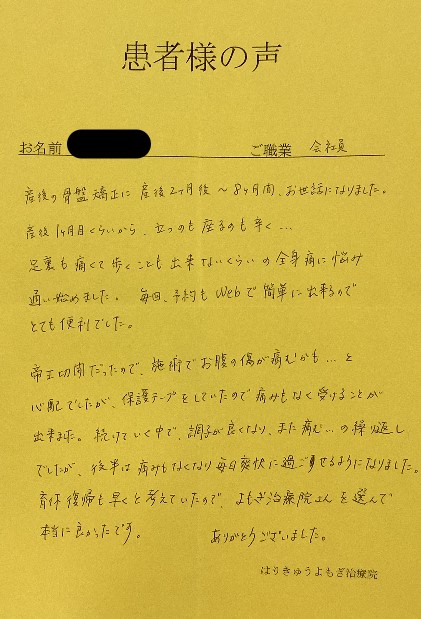 患者様の声
お名前 ご職業 会社員
産後の骨盤矯正に産後2ヶ月後〜8ヶ月間、お世話になりました。
産後1ヶ月目くらいから、立つのも座るのも辛く…
足裏も痛くて歩くことも出来ないくらいの全身痛に悩み
通い始めました。毎回、予約もWebで簡単に出来るので
とても便利でした。
帝王切開だったので、施術でお腹の傷が痛むかも…と
心配でしたが、保護テープをしていたので痛みもなく受けることが
出来ました。続けていく中で、調子が良くなり、また痛む…の繰り返し
でしたが、後半は痛みもなくなり毎日爽快に過ごせるようになりました。
育休復帰も早くと考えていたので、よもぎ治療院さんを選んで
本当に良かったです。 ありがとうございました。
はりきゅうよもぎ治療院